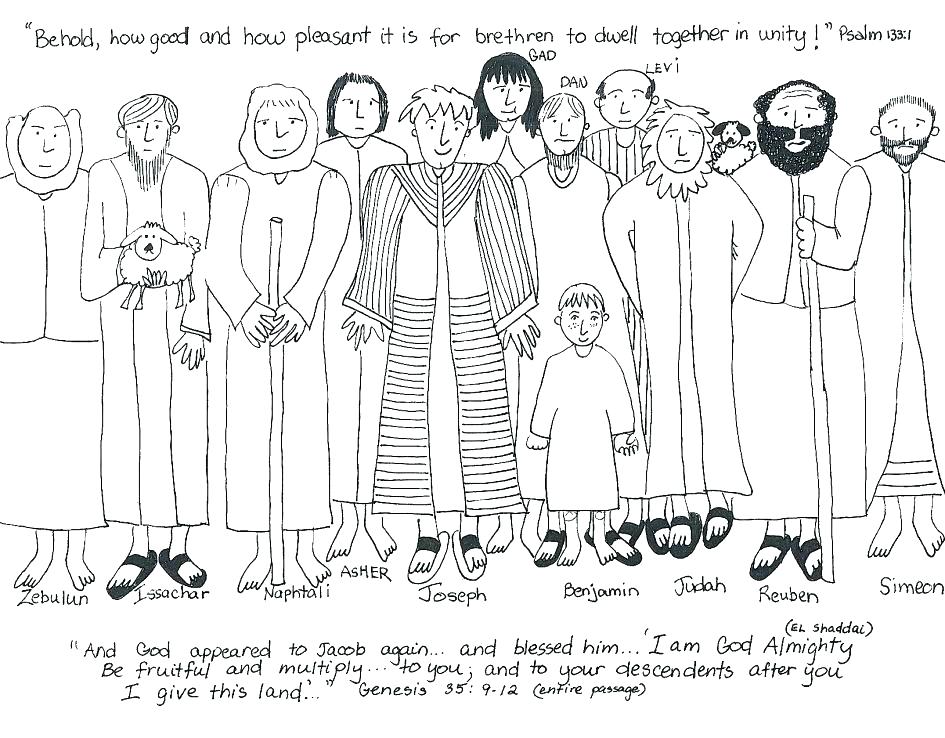 "Behold, how good and how pleasant it is for brethren to dwell together in unity!" Psalm 133:1
GAD
DAN
LEVi
Zebulun
Issachar
Naphtali
ASHER
Joseph
Benjamin
Judah
Reuben
Simeon
(EL Shaddai)
"And God appeared to Jacob again... and blessed him... 'I am God Almighty
Be fruitful and multiply... to you; and to your descendents after you
I give this land'..." Genesis 35: 9-12 (entire passage)